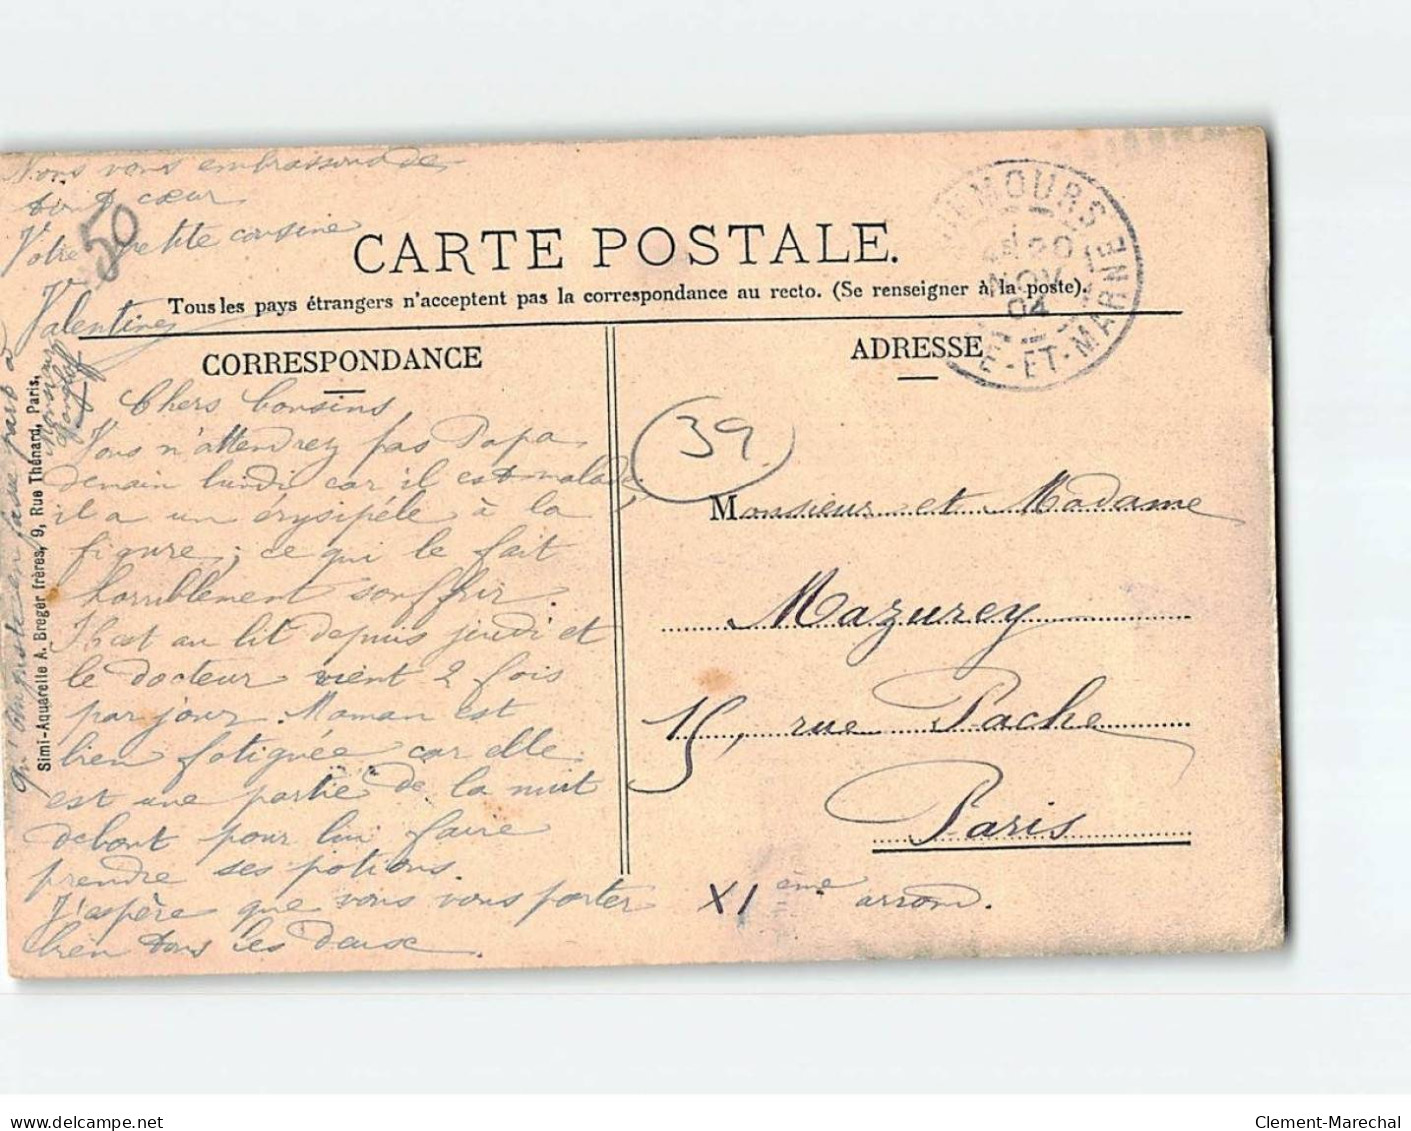 Nous vous embrassons de
tout cœur
Votre petite cousine
Valentine
50
CARTE POSTALE.
Tous les pays étrangers n'acceptent pas la correspondance au recto. (Se renseigner à la poste).
NEMOURS
20
NOV
04
E-ET-MARNE
CORRESPONDANCE
Chers Cousins
Vous n'attendrez pas Papa
demain lundi car il est malade,
il a un érysipéle à la
figure; ce qui le fait
horriblement souffrir.
Il est au lit depuis jeudi et
le docteur vient 2 fois
par jour. Maman est
bien fatiguée car elle
est une partie de la nuit
debout pour lui faire
prendre ses potions.
J'espère que vous vous porter
bien tous les deux.
en faire part à
Monsieur
Simi-Aquarelle A. Breger frères, 9, Rue Thénard, Paris.
ADRESSE
39
Monsieur et Madame
Mazurey
15, rue Pache
Paris
XI ème arrond.
www.delcampe.net
Clement-Marechal